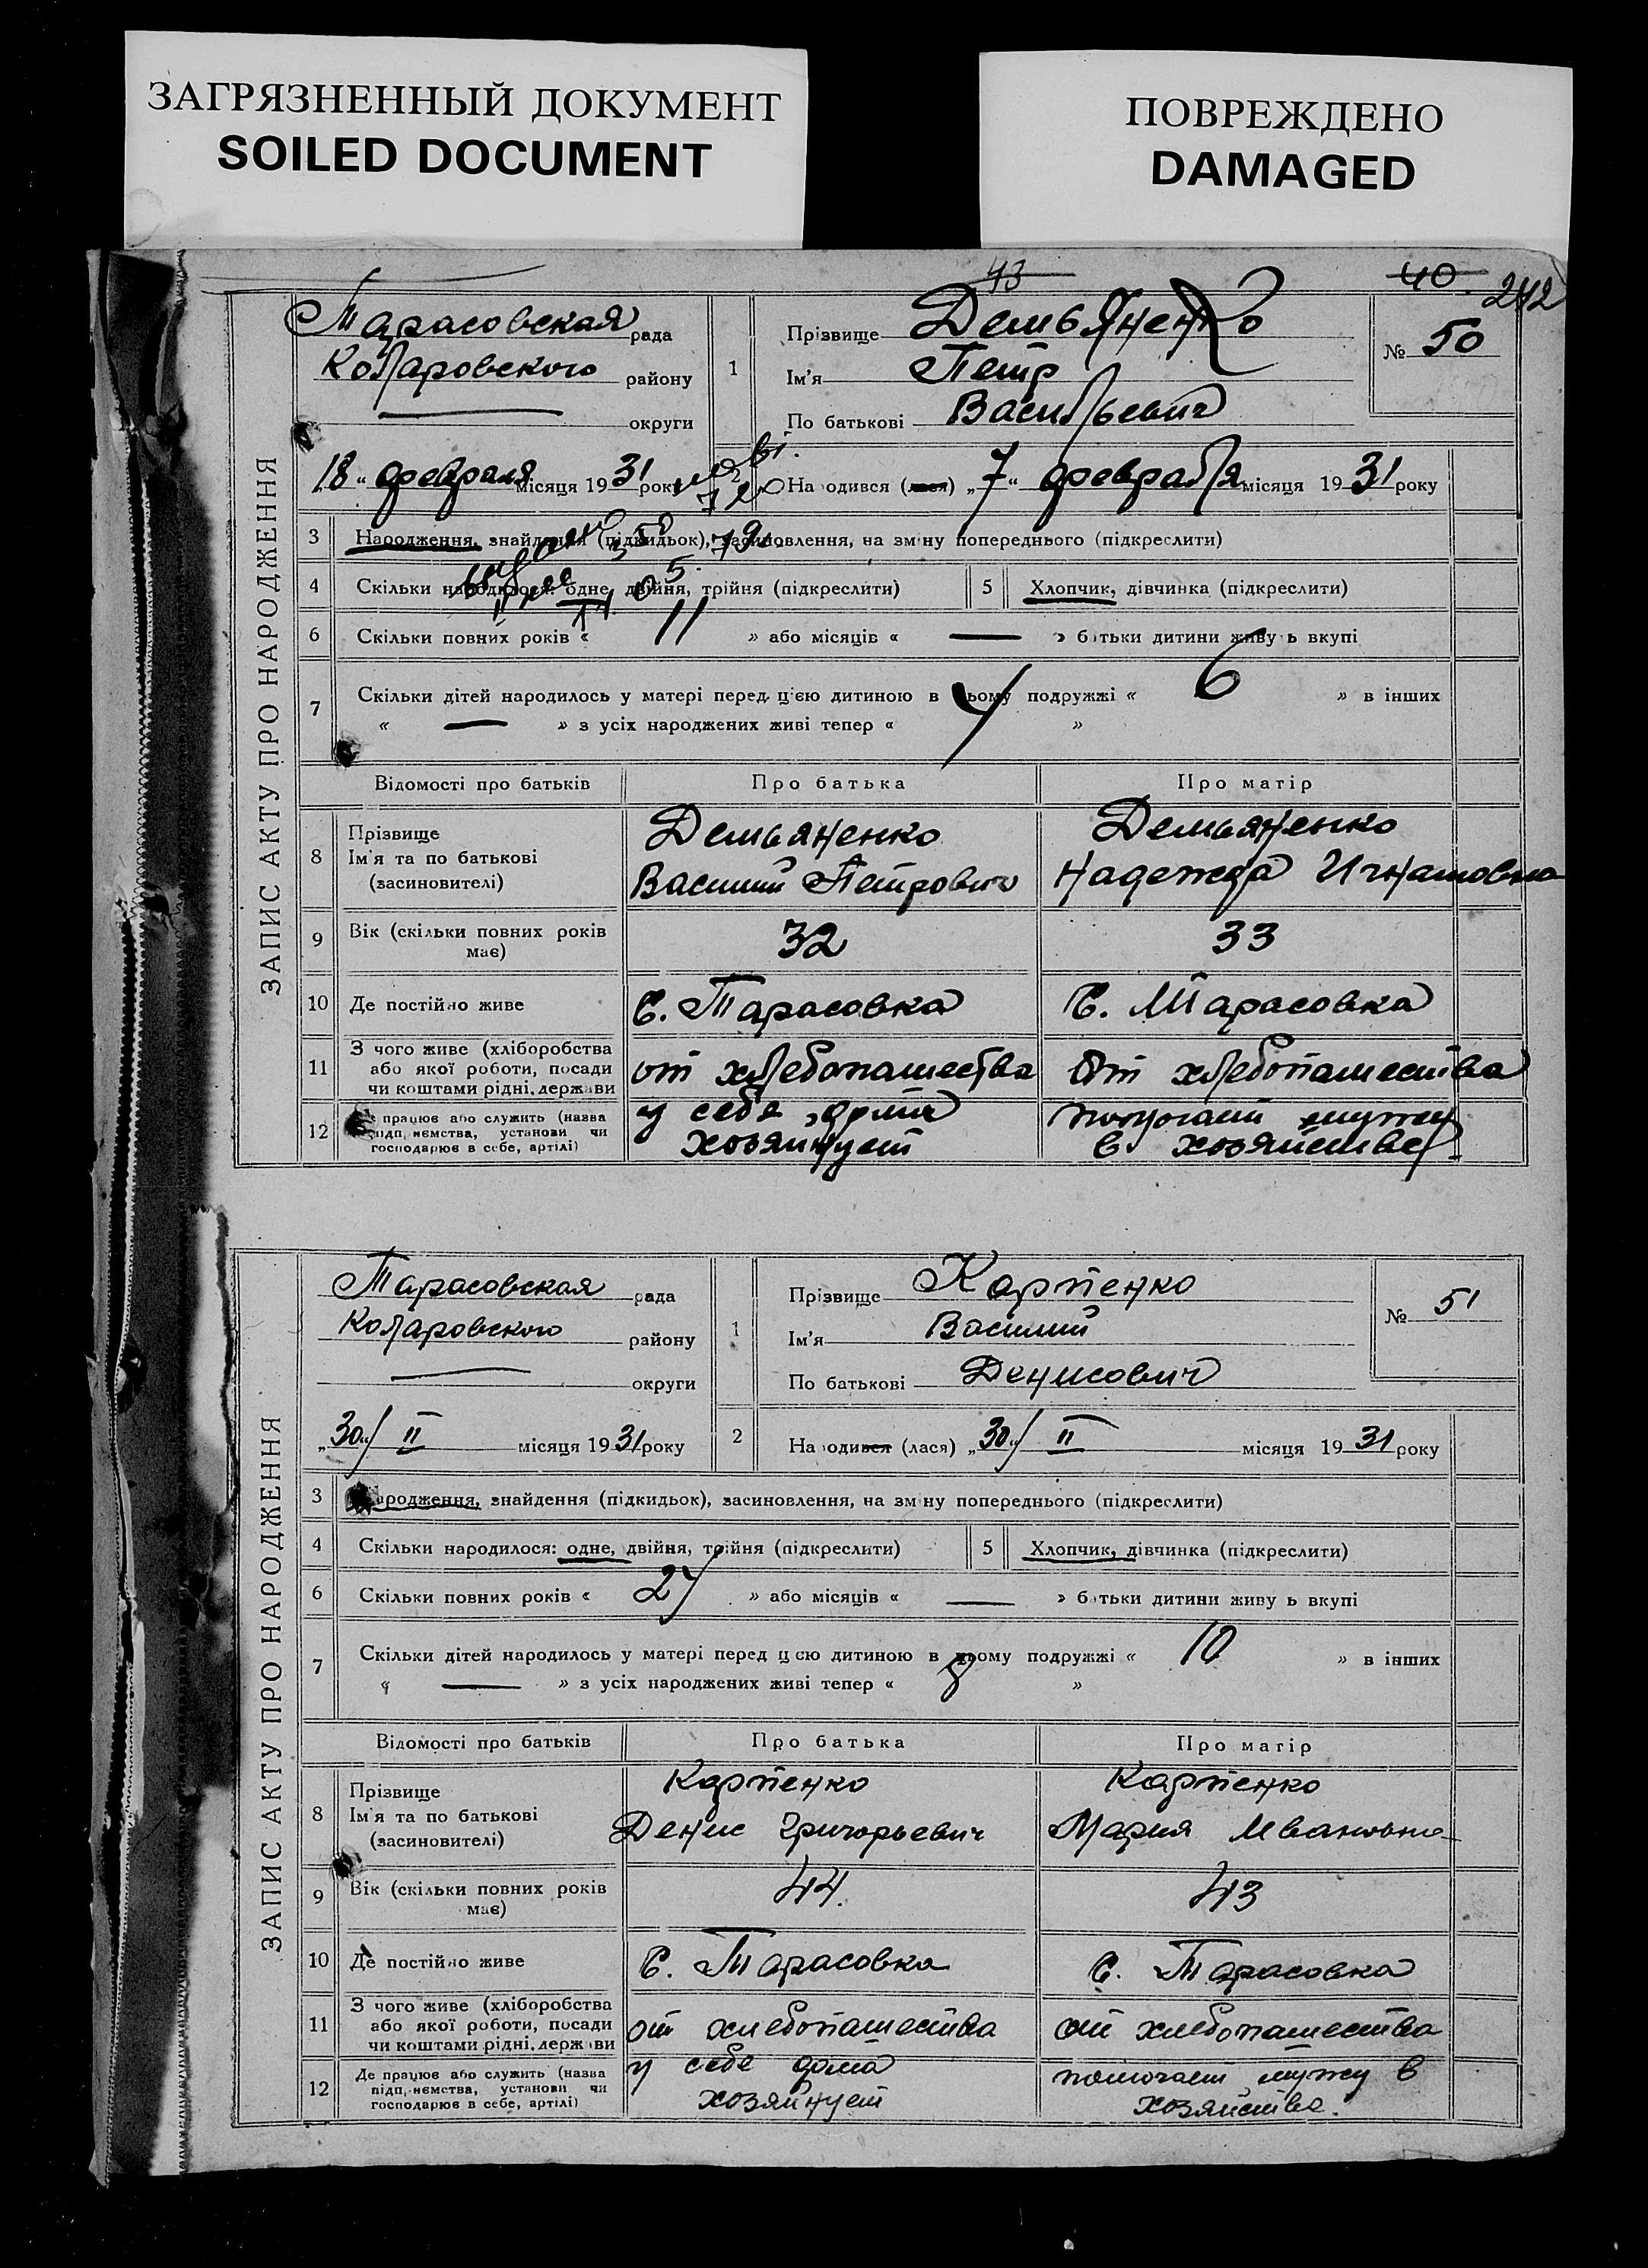 ЗАГРЯЗНЕННЫЙ ДОКУМЕНТ
SOILED DOCUMENT
ПОВРЕЖДЕНО
DAMAGED
43
40
242
ЗАПИС АКТУ ПРО НАРОДЖЕННЯ
Тарасовская рада
Коларовского району
— округи
1
Прізвище Демьяненко
Ім'я Петр
По батькові Васильевич
№ 50
„18“ февраля місяця 1931 року
2 Народився (лася) „7“ февраля місяця 1931 року
3 Народження, знайдення (підкидьок), засиновлення, на зміну попереднього (підкреслити)
4 Скільки народилося: одне, двійня, трійня (підкреслити)
5 Хлопчик, дівчинка (підкреслити)
6 Скільки повних років « 11 » або місяців « — » батьки дитини живуть вкупі
7 Скільки дітей народилось у матері перед цією дитиною в цьому подружжі « 6 » в інших
« — » з усіх народжених живі тепер « »
Відомості про батьків Про батька Про матір
8 Прізвище
Ім'я та по батькові
(засиновителі)
Демьяненко
Василий Петрович
Демьяненко
Надежда Игнатовна
9 Вік (скільки повних років
має)
32
33
10 Де постійно живе
С. Тарасовка
С. Тарасовка
11 З чого живе (хліборобства
або якої роботи, посади
чи коштами рідні, держави
от хлебопашества
От хлебопашества
12 Де працює або служить (назва
підприємства, установи чи
господарює в себе, артілі)
у себя дома
хозяинует
помогает мужу
в хозяйстве
ЗАПИС АКТУ ПРО НАРОДЖЕННЯ
Тарасовская рада
Коларовского району
— округи
1
Прізвище Карпенко
Ім'я Василий
По батькові Денисович
№ 51
„30“/ II місяця 1931 року
2 Народився (лася) „30“/ II місяця 1931 року
3 Народження, знайдення (підкидьок), засиновлення, на зміну попереднього (підкреслити)
4 Скільки народилося: одне, двійня, трійня (підкреслити)
5 Хлопчик, дівчинка (підкреслити)
6 Скільки повних років « » або місяців « — » батьки дитини живуть вкупі
7 Скільки дітей народилось у матері перед цією дитиною в цьому подружжі « 10 » в інших
« — » з усіх народжених живі тепер « 8 »
Відомості про батьків Про батька Про матір
8 Прізвище
Ім'я та по батькові
(засиновителі)
Карпенко
Денис Григорьевич
Карпенко
Мария Ивановна
9 Вік (скільки повних років
має)
44.
43
10 Де постійно живе
С. Тарасовка
С. Тарасовка
11 З чого живе (хліборобства
або якої роботи, посади
чи коштами рідні, держави
от хлебопашества
от хлебопашества
12 Де працює або служить (назва
підприємства, установи чи
господарює в себе, артілі)
у себе дома
хозяйнует
помогает мужу в
хозяйстве.